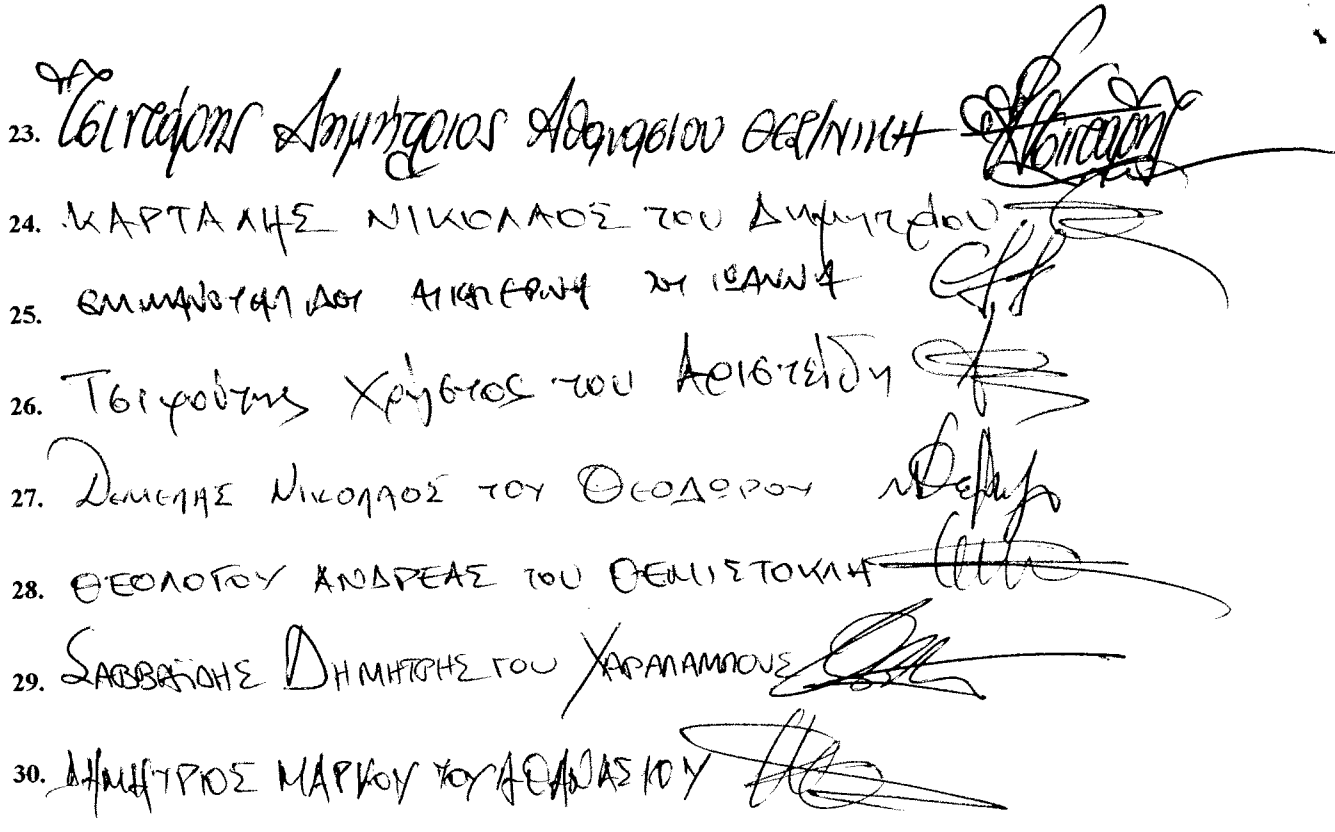 23. Τσιντάρης Δημήτριος Αθανασίου ΘΕΡ/ΝΙΚΗ
24. ΚΑΡΤΑΛΗΣ ΝΙΚΟΛΑΟΣ του Δημητρίου
25. ΕΜΜΑΝΟΥΗΛΙΔΟΥ ΑΙΚΑΤΕΡΙΝΗ του ΙΩΑΝΝΗ
26. Τσιφούτης Χρήστος του Αριστείδη
27. ΔΕΜΕΛΗΣ ΝΙΚΟΛΑΟΣ ΤΟΥ ΘΕΟΔΩΡΟΥ
28. ΘΕΟΛΟΓΟΥ ΑΝΔΡΕΑΣ του ΘΕΜΙΣΤΟΚΛΗ
29. ΣΑΒΒΑΪΔΗΣ ΔΗΜΗΤΡΗΣ ΤΟΥ ΧΑΡΑΛΑΜΠΟΥΣ
30. ΔΗΜΗΤΡΙΟΣ ΜΑΡΚΟΥ ΤΟΥ ΑΘΑΝΑΣΙΟΥ